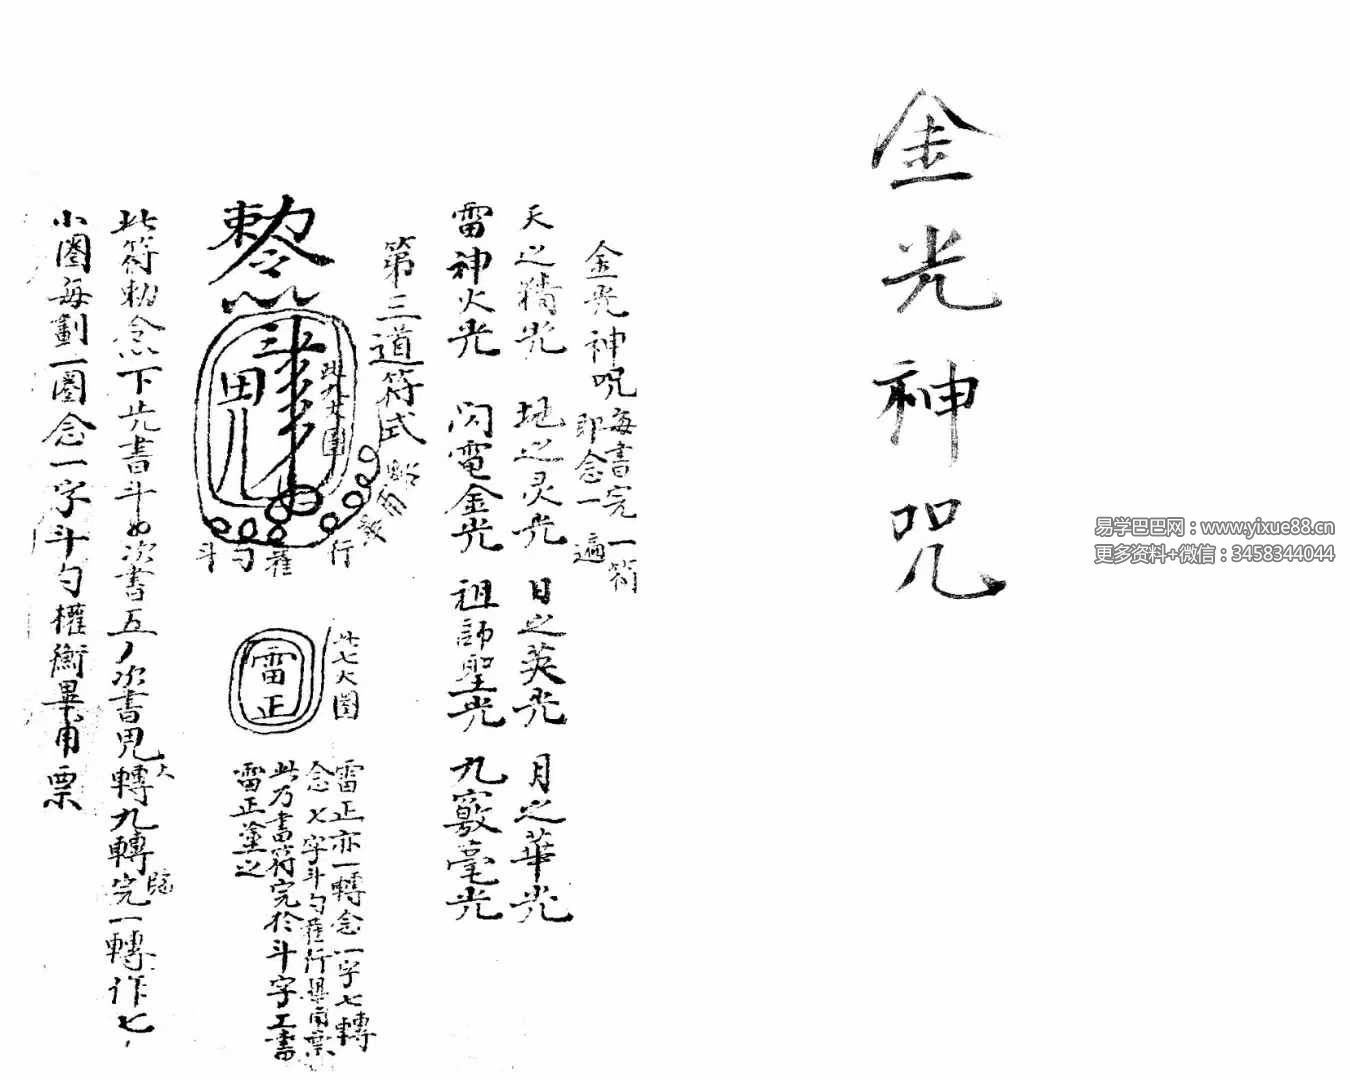 金光神咒
易学巴巴网：www.yixue88.cn
更多资料+微信：3458344044
金光神咒 每書完一符
即念一遍
天之精光 地之灵光 日之英光 月之華光
雷神火光 闪電金光 祖師聖光 九竅毫光
第三道符式
勅令
田
此九大圈
斗勺 行
此七大圈
雷正
雷正亦一轉念一字七轉
念七字斗勺 行畢甪票
此乃書符完於斗字工書
雷正塗之
此符勅令下先書斗 次書五 次書 轉九轉完一轉作七
大
臨
小圈每劃一圈念一字斗勺權衡畢甪票